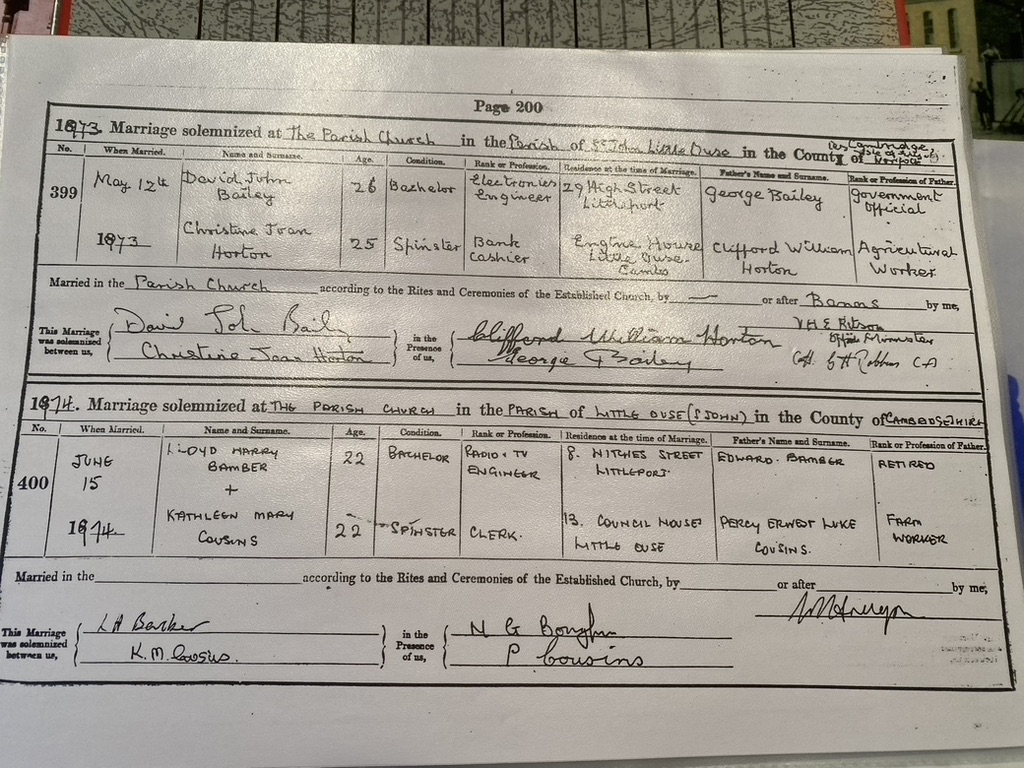 Page 200
1973. Marriage solemnized at The Parish Church in the Parish of St John Little Ouse in the County of Cambridge
No. When Married. Name and Surname. Age. Condition. Rank or Profession. Residence at the time of Marriage. Father's Name and Surname. Rank or Profession of Father.
399 May 12th David John Bailey 26 Bachelor Electronics Engineer 29 High Street Littleport George Bailey Government Official
1973 Christine Joan Horton 25 Spinster Bank Cashier Engine House Little Ouse Cambs Clifford William Horton Agricultural Worker
Married in the Parish Church according to the Rites and Ceremonies of the Established Church, by — or after Banns by me,
This Marriage was solemnized between us, David John Bailey in the Presence of us, Clifford William Horton
Christine Joan Horton George Bailey
1974. Marriage solemnized at THE PARISH CHURCH in the PARISH of LITTLE OUSE (S JOHN) in the County of
No. When Married. Name and Surname. Age. Condition. Rank or Profession. Residence at the time of Marriage. Father's Name and Surname. Rank or Profession of Father.
400 JUNE 15 LLOYD HARRY BAMBER 22 BACHELOR RADIO + TV ENGINEER 8. HITCHES STREET LITTLEPORT. EDWARD. BAMBER RETIRED
+
1974. KATHLEEN MARY COUSINS 22 SPINSTER CLERK. 13. COUNCIL HOUSES LITTLE OUSE PERCY ERNEST LUKE COUSINS. FARM WORKER
Married in the according to the Rites and Ceremonies of the Established Church, by or after by me,
This Marriage was solemnized between us, in the Presence of us, N G
K.M. Cousins. P Cousins